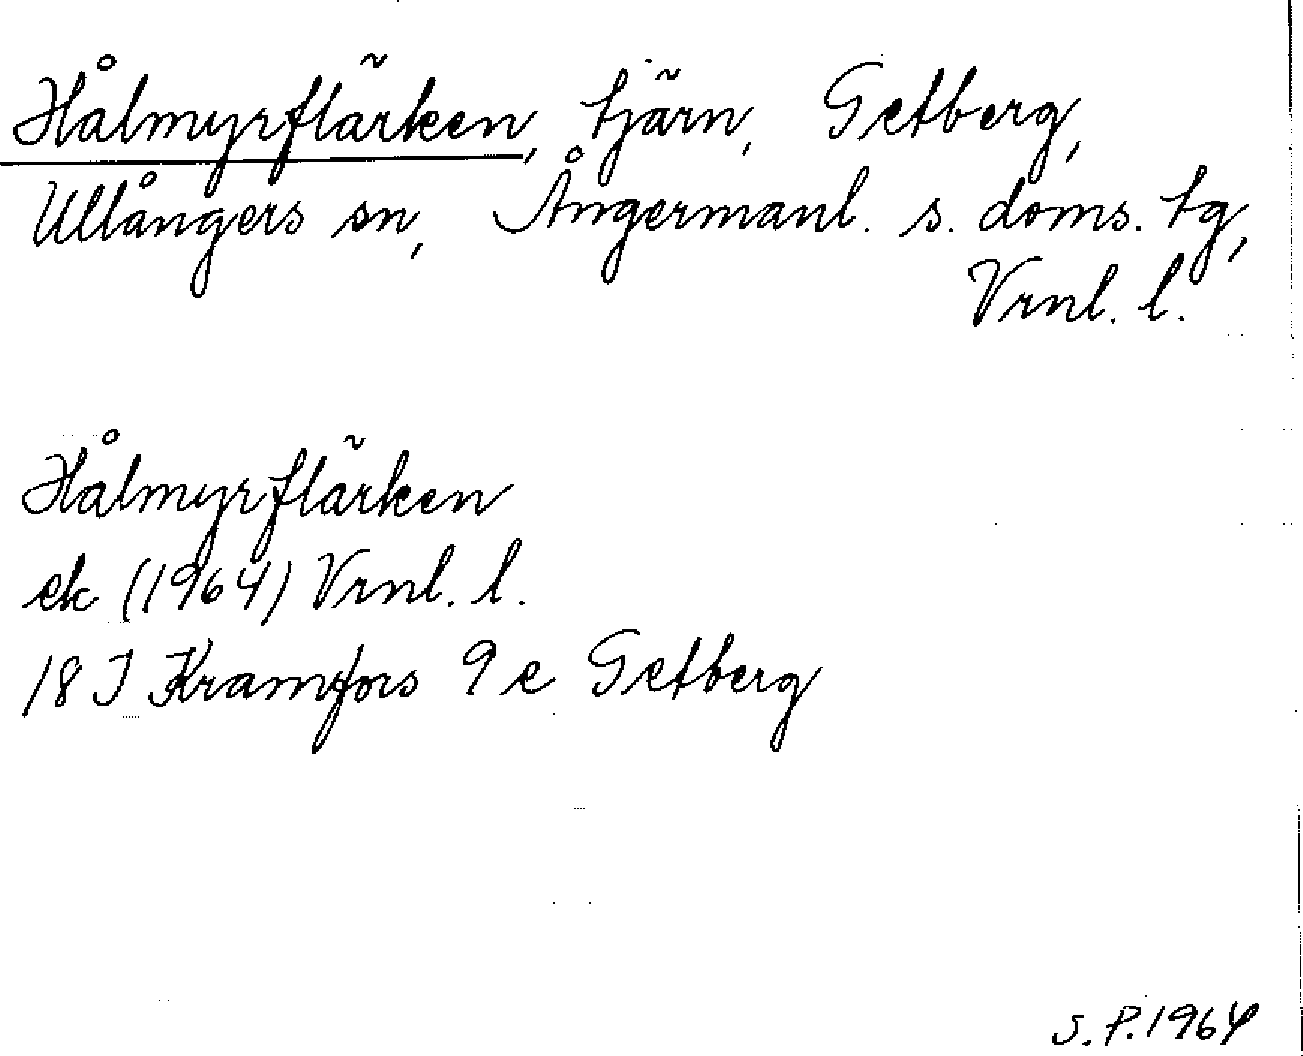 Hålmyrflärken, tjärn, Getberg,
Ullångers sn, Ångermanl. s. doms. tg,
Vrnl. l.
Hålmyrflärken
ek (1964) Vrnl. l.
18 J Kramfors 9 e Getberg
S. P. 1964